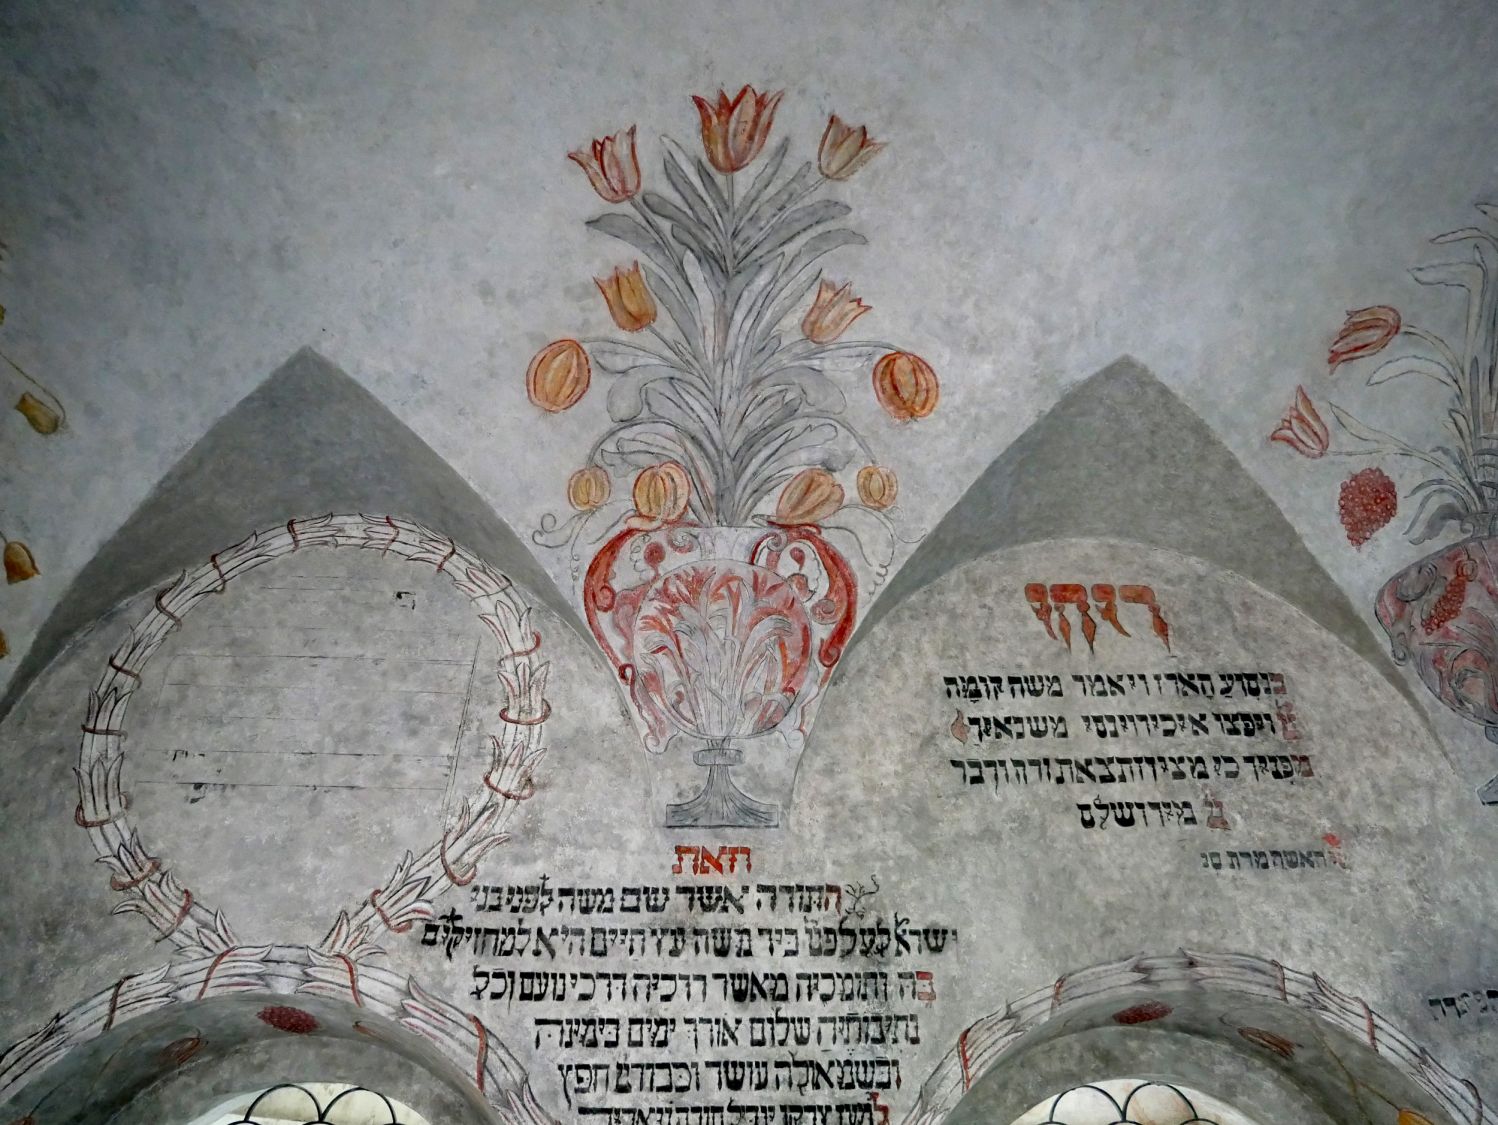 ויהי
בנסוע הארז ויאמר משה קומה
ויפצו איביך וינסי משנאיך
מפניך כי מציון תצא תורה ודבר
מירושלם
וזאת
התורה אשר שם משה לפני בני
ישראל על פי ביד משה עץ חיים היא למחזיקים
בה ותומכיה מאשר דרכיה דרכי נועם וכל
נתיבותיה שלום אורך ימים בימינה
ובשמאולה עושר וכבוד חפץ
למען צדקו יגדיל תורה ויאדיר